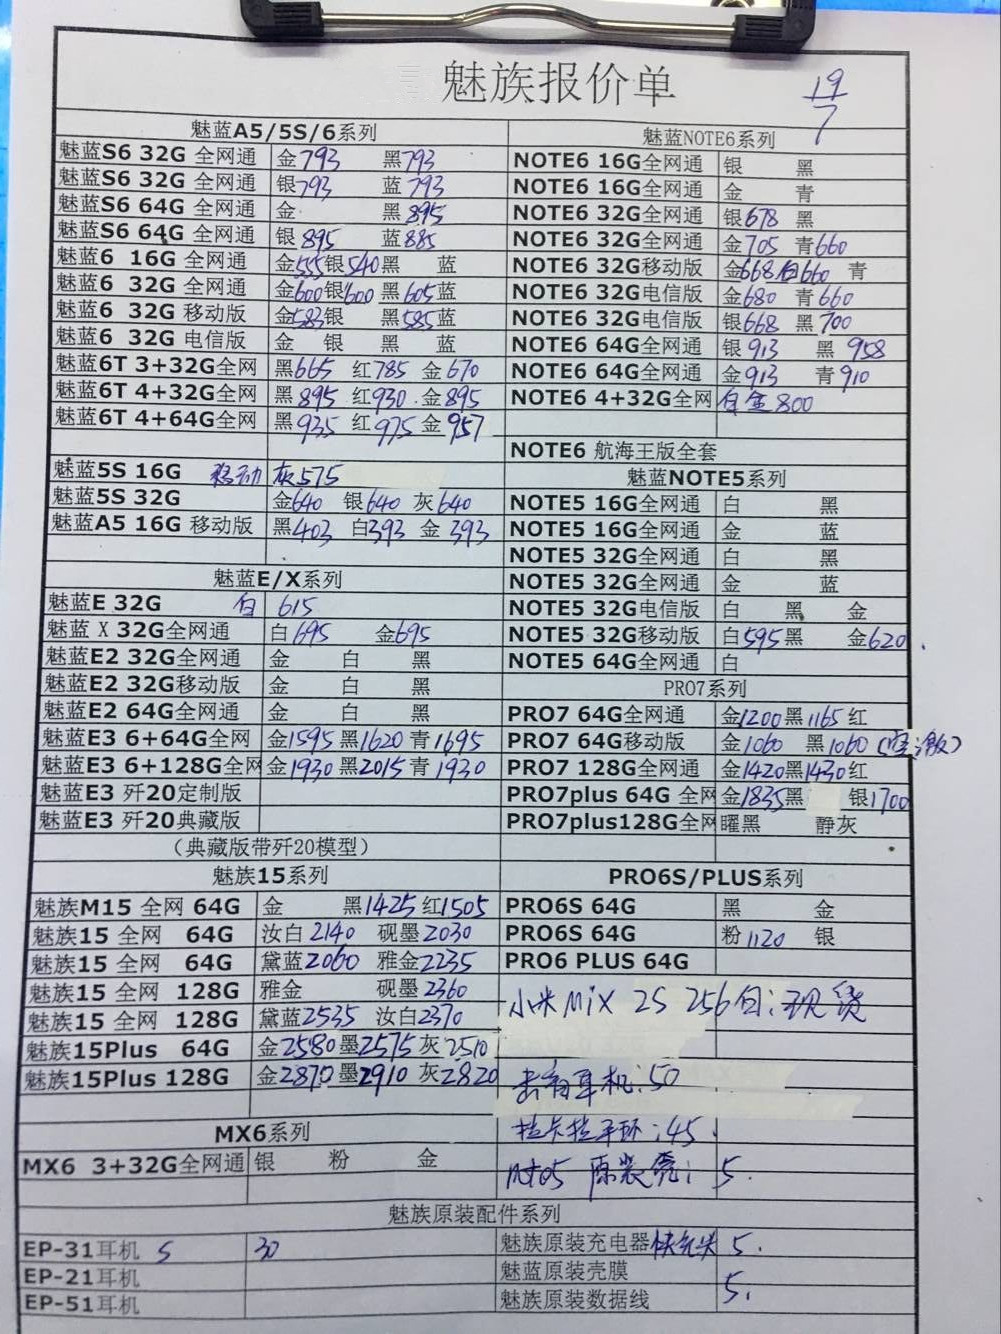 魅族报价单
19/7
魅蓝A5/5S/6系列
魅蓝S6 32G 全网通 金793 黑793
魅蓝S6 32G 全网通 银793 蓝793
魅蓝S6 64G 全网通 金 黑895
魅蓝S6 64G 全网通 银895 蓝885
魅蓝6 16G 全网通 金555银540黑 蓝
魅蓝6 32G 全网通 金600银600黑605蓝
魅蓝6 32G 移动版 金583银 黑585蓝
魅蓝6 32G 电信版 金 银 黑 蓝
魅蓝6T 3+32G全网 黑665 红785 金670
魅蓝6T 4+32G全网 黑895 红930 金895
魅蓝6T 4+64G全网 黑935 红975 金957
魅蓝5S 16G 移动 灰575
魅蓝5S 32G 金640 银640 灰640
魅蓝A5 16G 移动版 黑403 白393 金393
魅蓝E/X系列
魅蓝E 32G 白 615
魅蓝 X 32G全网通 白695 金695
魅蓝E2 32G全网通 金 白 黑
魅蓝E2 32G移动版 金 白 黑
魅蓝E2 64G全网通 金 白 黑
魅蓝E3 6+64G全网 金1595黑1620青1695
魅蓝E3 6+128G全网 金1930黑2015青1930
魅蓝E3 歼20定制版
魅蓝E3 歼20典藏版
（典藏版带歼20模型）
魅族15系列
魅族M15 全网 64G 金 黑1425红1505
魅族15 全网 64G 汝白2140 砚墨2030
魅族15 全网 64G 黛蓝2060 雅金2235
魅族15 全网 128G 雅金 砚墨2360
魅族15 全网 128G 黛蓝2535 汝白2370
魅族15Plus 64G 金2580墨2575灰2510
魅族15Plus 128G 金2870墨2910灰2820
MX6系列
MX6 3+32G全网通 银 粉 金
魅蓝NOTE6系列
NOTE6 16G全网通 银 黑
NOTE6 16G全网通 金 青
NOTE6 32G全网通 银678 黑
NOTE6 32G全网通 金705 青660
NOTE6 32G移动版 金668白660 青
NOTE6 32G电信版 金680 青660
NOTE6 32G电信版 银668 黑700
NOTE6 64G全网通 银913 黑958
NOTE6 64G全网通 金913 青910
NOTE6 4+32G全网 白金800
NOTE6 航海王版全套
魅蓝NOTE5系列
NOTE5 16G全网通 白 黑
NOTE5 16G全网通 金 蓝
NOTE5 32G全网通 白 黑
NOTE5 32G全网通 金 蓝
NOTE5 32G电信版 白 黑 金
NOTE5 32G移动版 白595黑 金620
NOTE5 64G全网通 白
PRO7系列
PRO7 64G全网通 金1200黑1165红
PRO7 64G移动版 金1060 黑1060
PRO7 128G全网通 金1420黑1430红
PRO7plus 64G 全网 金1835黑 银1700
PRO7plus128G全网 曜黑 静灰
PRO6S/PLUS系列
PRO6S 64G 黑 金
PRO6S 64G 粉1120 银
PRO6 PLUS 64G
小米MiX 2S 256白：现货
耳机：50
拉卡拉手环：45
原装壳：5.
魅族原装配件系列
EP-31耳机 S 30
EP-21耳机
EP-51耳机
魅族原装充电器 快充头 5.
魅蓝原装壳膜
魅族原装数据线 5.